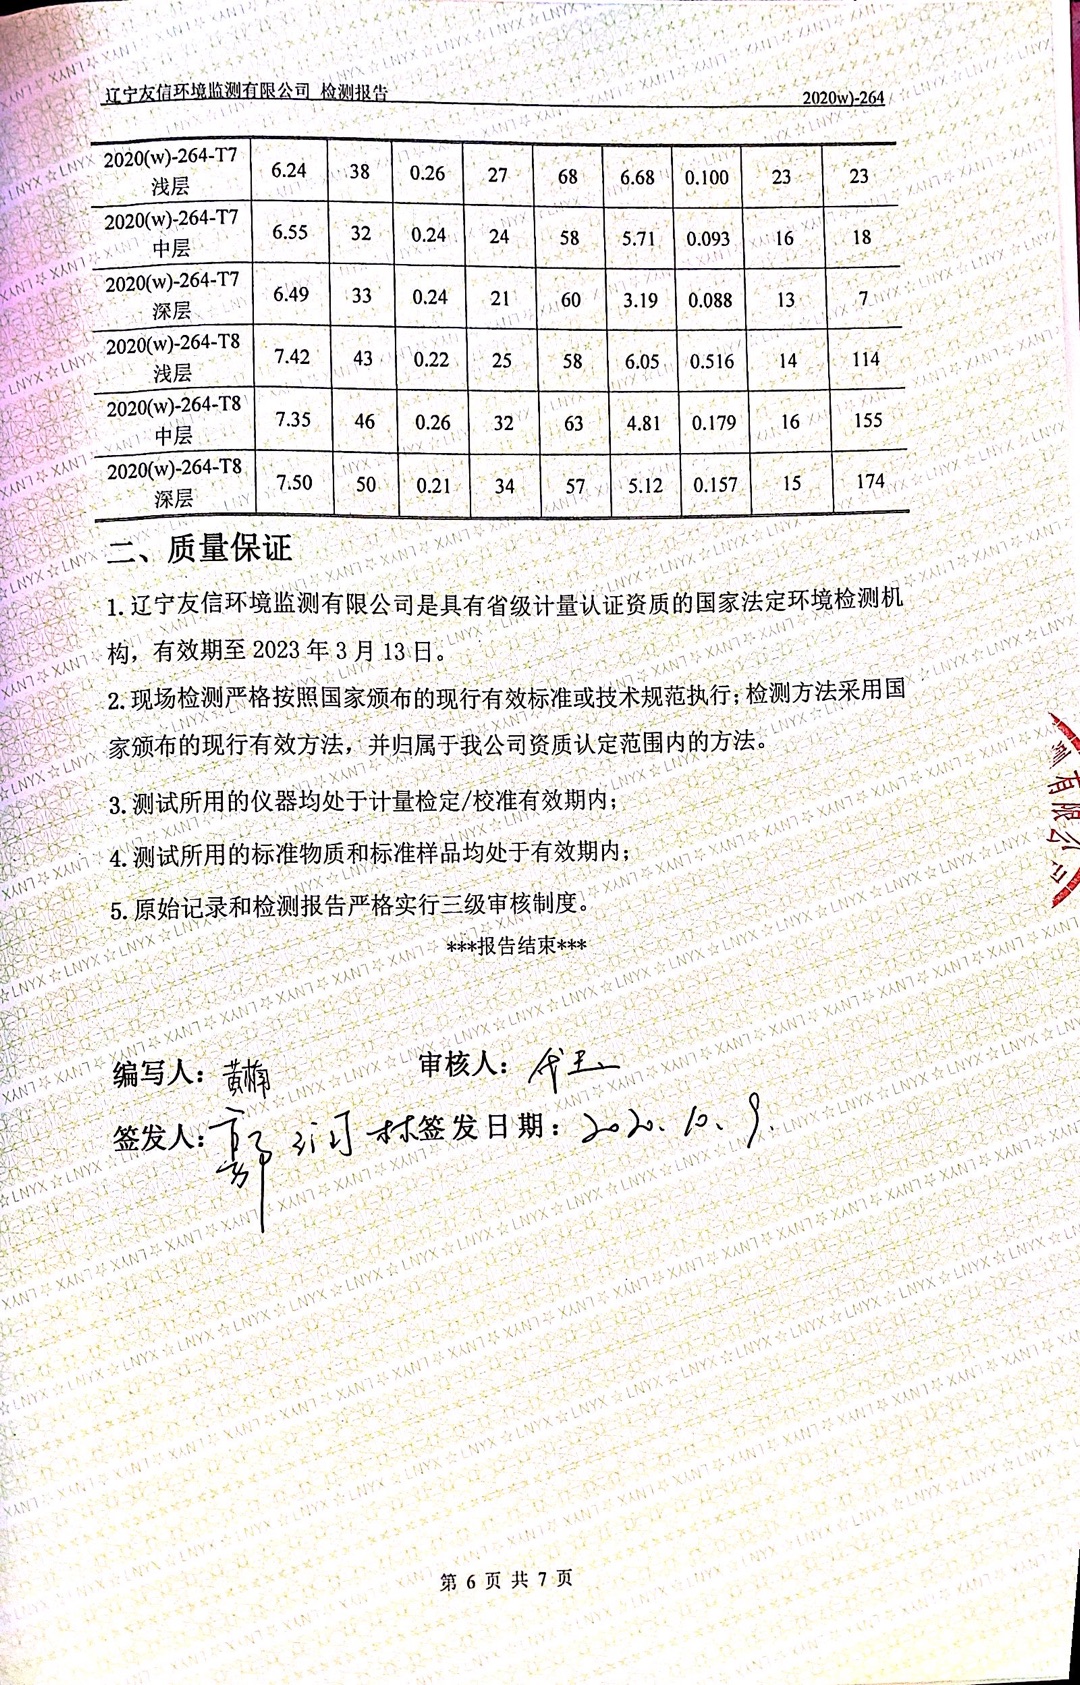 辽宁友信环境监测有限公司 检测报告 2020w)-264
2020(w)-264-T7 浅层 6.24 38 0.26 27 68 6.68 0.100 23 23
2020(w)-264-T7 中层 6.55 32 0.24 24 58 5.71 0.093 16 18
2020(w)-264-T7 深层 6.49 33 0.24 21 60 3.19 0.088 13 7
2020(w)-264-T8 浅层 7.42 43 0.22 25 58 6.05 0.516 14 114
2020(w)-264-T8 中层 7.35 46 0.26 32 63 4.81 0.179 16 155
2020(w)-264-T8 深层 7.50 50 0.21 34 57 5.12 0.157 15 174
二、质量保证
1. 辽宁友信环境监测有限公司是具有省级计量认证资质的国家法定环境检测机
构，有效期至 2023 年 3 月 13 日。
2. 现场检测严格按照国家颁布的现行有效标准或技术规范执行；检测方法采用国
家颁布的现行有效方法，并归属于我公司资质认定范围内的方法。
3. 测试所用的仪器均处于计量检定/校准有效期内；
4. 测试所用的标准物质和标准样品均处于有效期内；
5. 原始记录和检测报告严格实行三级审核制度。
***报告结束***
编写人： 审核人：
签发人： 签发日期：2020.10.9.
第 6 页 共 7 页
测有限公司
LNYX☆LNYX☆LNYX